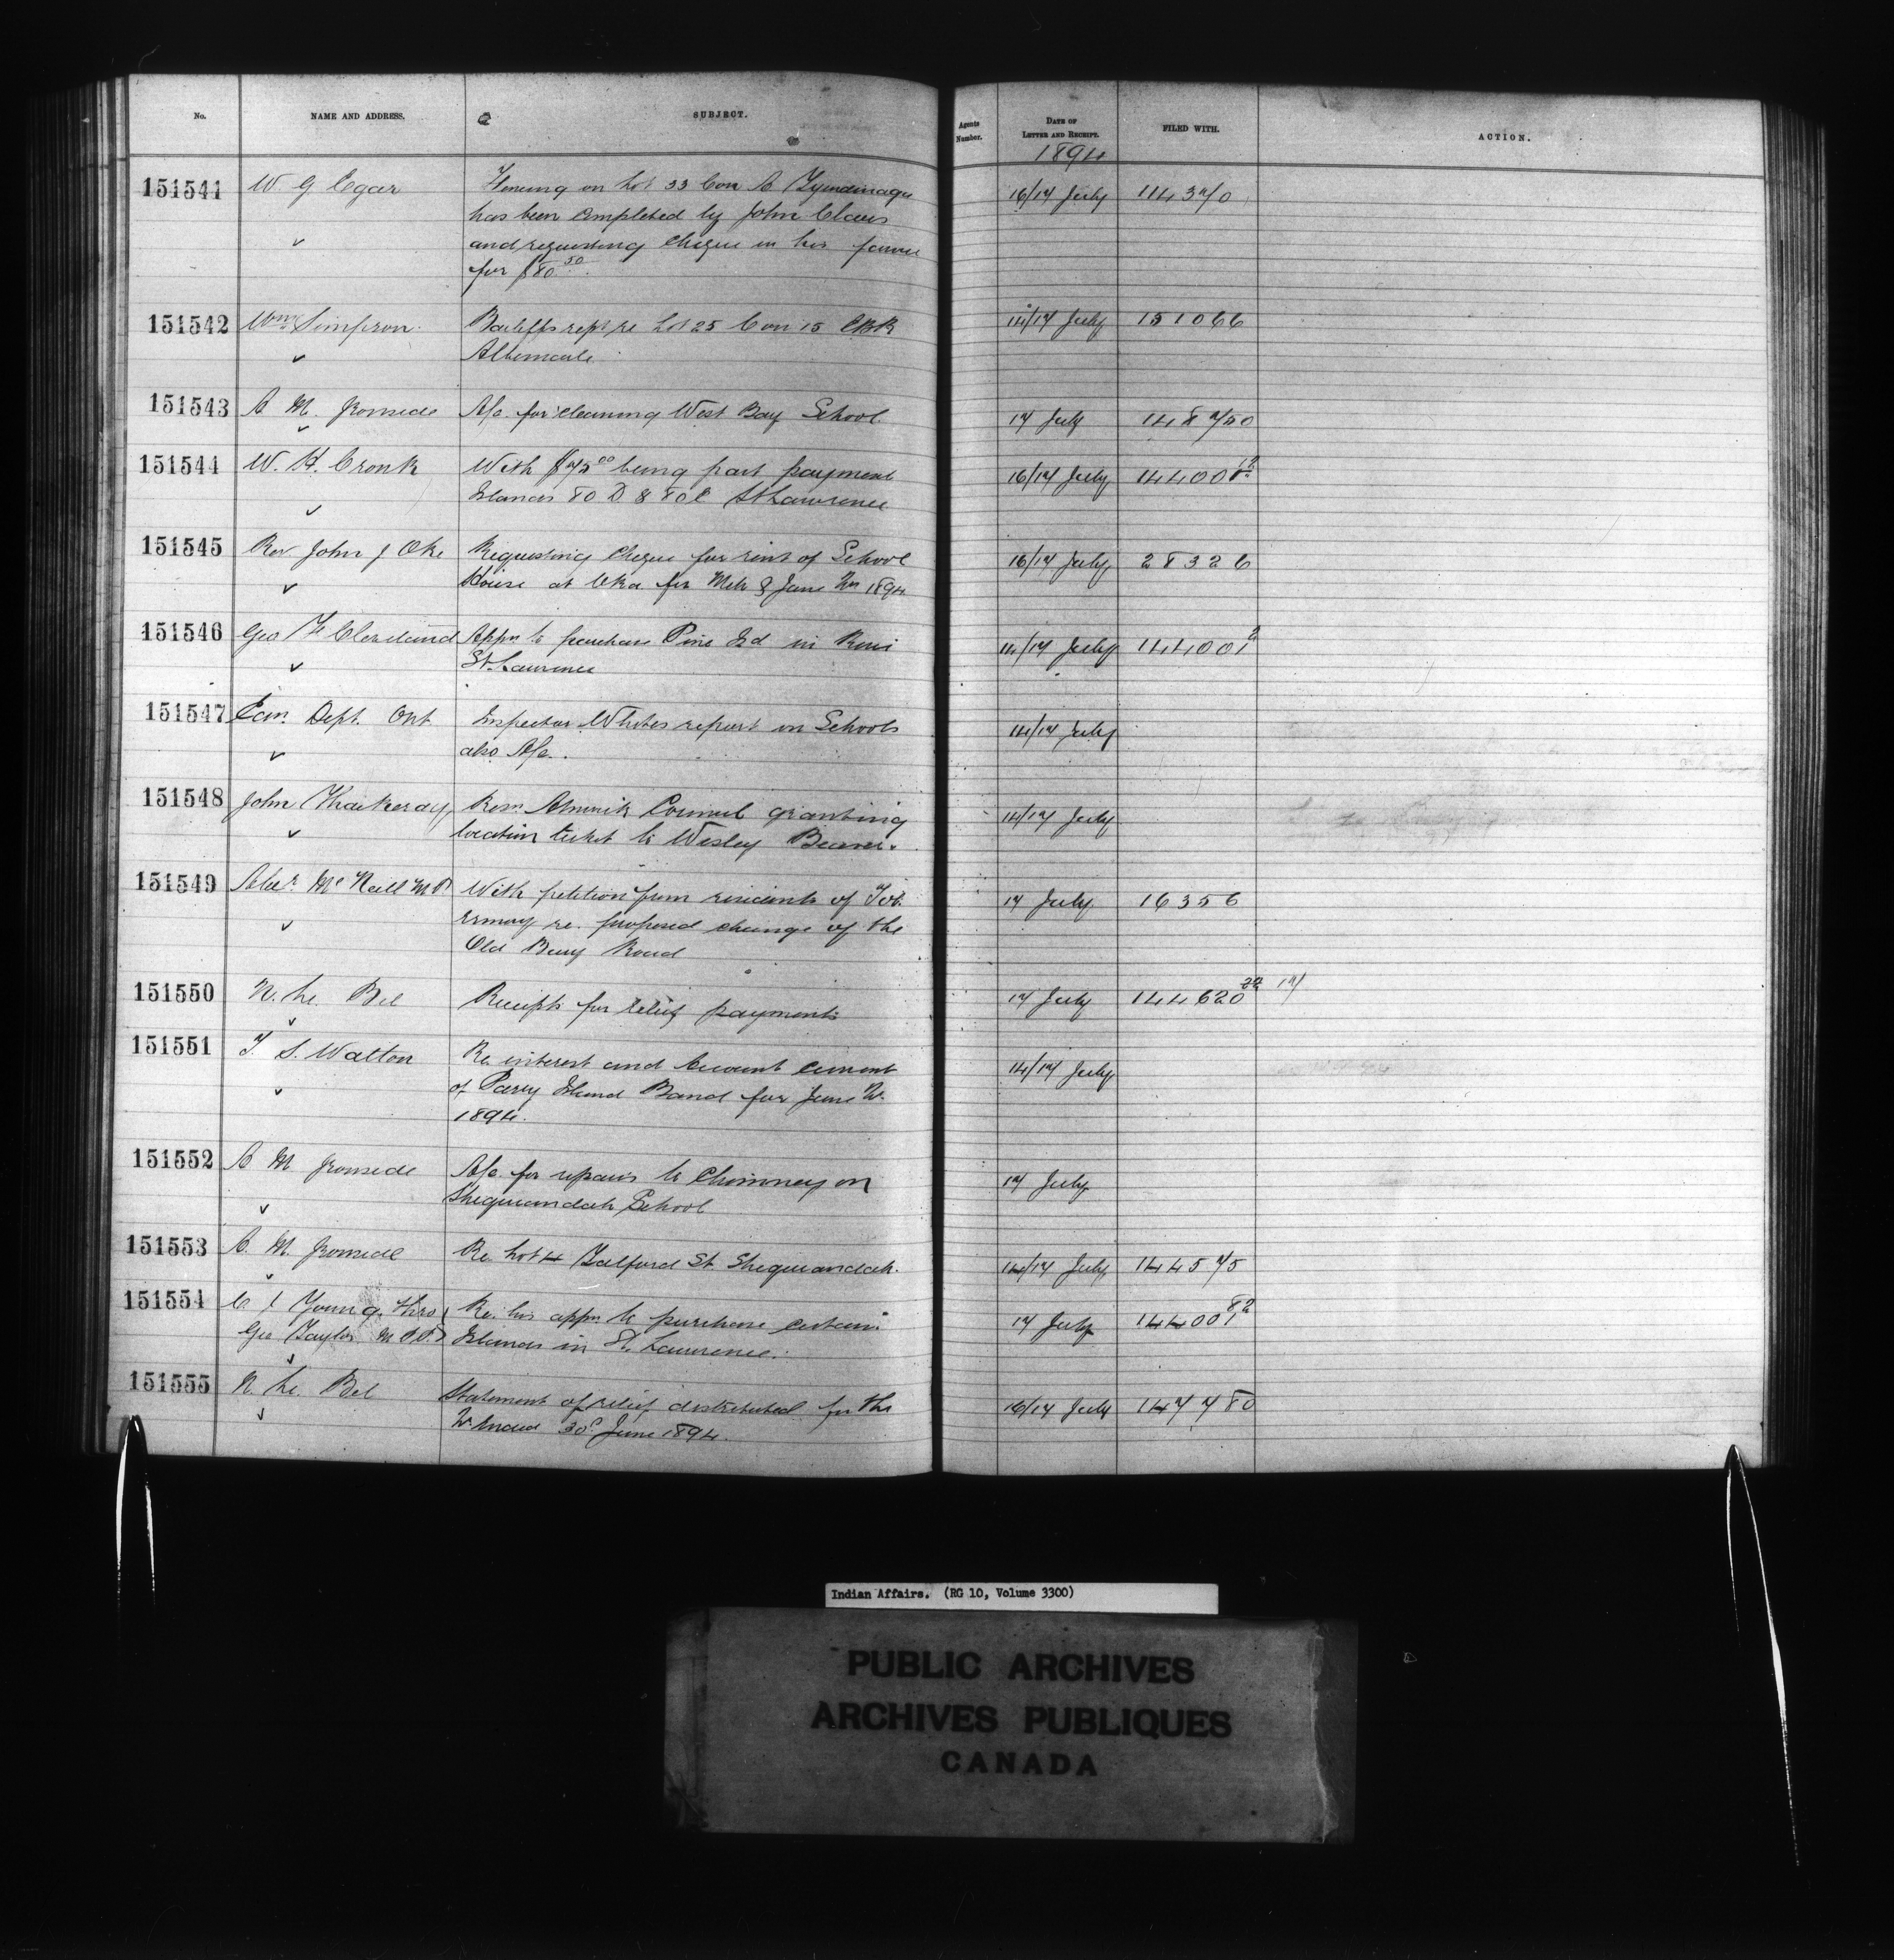 No. NAME AND ADDRESS. SUBJECT. Agents Number. DATE OF LETTER AND RECEIPT. FILED WITH. ACTION.
1894
151541 W. G Egar Fencing on Lot 33 Con A Tyendinaga 16/17 July 114370
has been completed by John Claus
and requesting cheque in his favour
for $80.50
151542 Wm Simpson Bailiffs rept re Lot 25 Con 15 EBR 14/17 July 151066
Albemarle
151543 A M. Ironside A/c. for cleaning West Bay School 17 July 148750
151544 W. H. Cronk With $75.00 being part payment 16/17 July 144001
Islands 80 D & 80 E St Lawrence
151545 Rev John J Oke Requesting cheque for rent of School 16/17 July 28326
House at Oka for Mch & June Qrs 1894
151546 Geo F Cleveland Appn to purchase Pine Id in River 14/17 July 144001 2
St. Lawrence
151547 Edn. Dept. Ont Inspector Whites report on Schools 14/17 July
also A/c.
151548 John Thackeray Resn. Alnwick Council granting 14/17 July
location ticket to Wesley Beaver.
151549 Alexr McNeill M.P. With petition from residents of Tob- 17 July 16356
ermory re. proposed change of the
Old Bury Road
151550 N. Le Bel Receipts for relief payments 17 July 144620
151551 T. S. Walton Re interest and Account current 14/17 July
of Parry Island Band for June Qr.
1894.
151552 A M Ironside A/c. for repairs to Chimney on 17 July
Sheguiandah School
151553 A. M. Ironside Re. Lot 4 Talford St. Sheguiandah. 14/17 July 144575
151554 C J Young thro Re. his appn to purchase certain 17 July 144001 82
Geo Taylor M.P. Islands in St. Lawrence.
151555 N. Le. Bel Statement of relief distributed for the 16/17 July 147780
Qr ended 30th June 1894.
Indian Affairs. (RG 10, Volume 3300)
PUBLIC ARCHIVES
ARCHIVES PUBLIQUES
CANADA